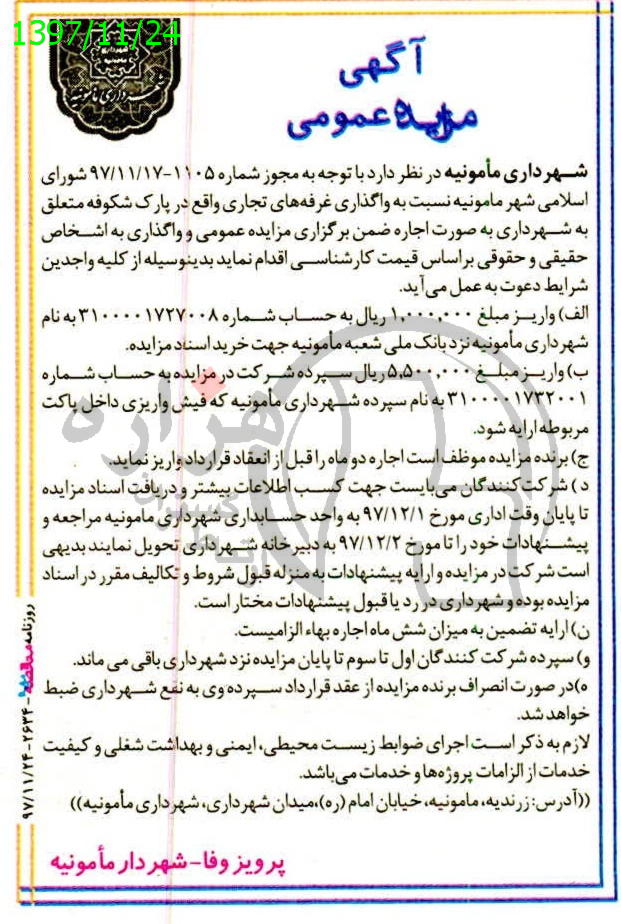 1397/11/24
شهرداری مامونیه
شهرداری مأمونیه
آگهی
مزایده عمومی
شهرداری مأمونیه در نظر دارد با توجه به مجوز شماره ۱۱۰۵-۹۷/۱۱/۱۷ شورای
اسلامی شهر مامونیه نسبت به واگذاری غرفه‌های تجاری واقع در پارک شکوفه متعلق
به شهرداری به صورت اجاره ضمن برگزاری مزایده عمومی و واگذاری به اشخاص
حقیقی و حقوقی براساس قیمت کارشناسی اقدام نماید بدینوسیله از کلیه واجدین
شرایط دعوت به عمل می‌آید.
الف) واریز مبلغ ۱,۰۰۰,۰۰۰ ریال به حساب شماره ۳۱۰۰۰۰۱۷۲۷۰۰۸ به نام
شهرداری مأمونیه نزد بانک ملی شعبه مأمونیه جهت خرید اسناد مزایده.
ب) واریز مبلغ ۵,۵۰۰,۰۰۰ ریال سپرده شرکت در مزایده به حساب شماره
۳۱۰۰۰۰۱۷۳۲۰۰۱ به نام سپرده شهرداری مأمونیه که فیش واریزی داخل پاکت
مربوطه ارایه شود.
ج) برنده مزایده موظف است اجاره دو ماه را قبل از انعقاد قرارداد واریز نماید.
د) شرکت‌کنندگان می‌بایست جهت کسب اطلاعات بیشتر و دریافت اسناد مزایده
تا پایان وقت اداری مورخ ۹۷/۱۲/۱ به واحد حسابداری شهرداری مامونیه مراجعه و
پیشنهادات خود را تا مورخ ۹۷/۱۲/۲ به دبیرخانه شهرداری تحویل نمایند بدیهی
است شرکت در مزایده و ارایه پیشنهادات به منزله قبول شروط و تکالیف مقرر در اسناد
مزایده بوده و شهرداری در رد یا قبول پیشنهادات مختار است.
ن) ارایه تضمین به میزان شش ماه اجاره بهاء الزامیست.
و) سپرده شرکت کنندگان اول تا سوم تا پایان مزایده نزد شهرداری باقی می ماند.
ه) در صورت انصراف برنده مزایده از عقد قرارداد سپرده وی به نفع شهرداری ضبط
خواهد شد.
لازم به ذکر است اجرای ضوابط زیست محیطی، ایمنی و بهداشت شغلی و کیفیت
خدمات از الزامات پروژه‌ها و خدمات می‌باشد.
((آدرس: زرندیه، مامونیه، خیابان امام (ره)، میدان شهرداری، شهرداری مأمونیه))
پرویز وفا - شهردار مأمونیه
روزنامه مناقصه - ۲۶۳۴ - ۹۷/۱۱/۲۴
هزاره